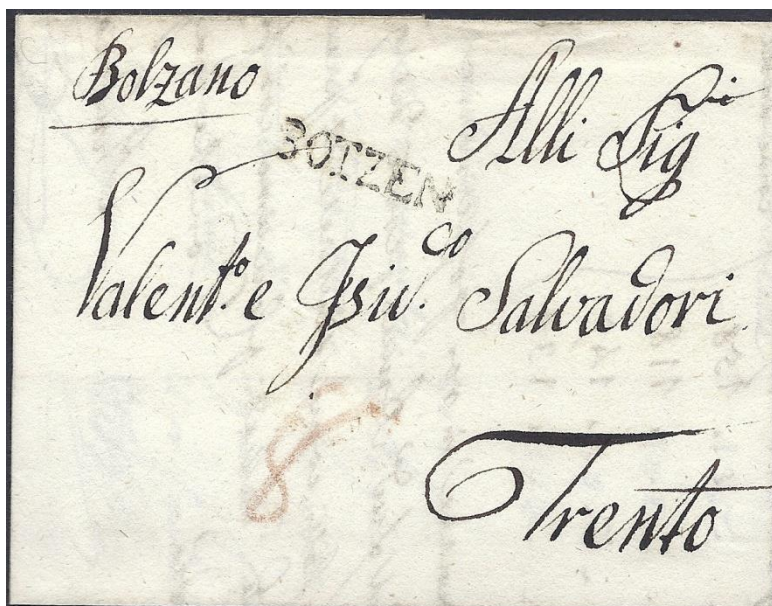 Bolzano
BOTZEN
Alli Sig.ri
Valent.o e Isid.co Salvadori
Trento
8